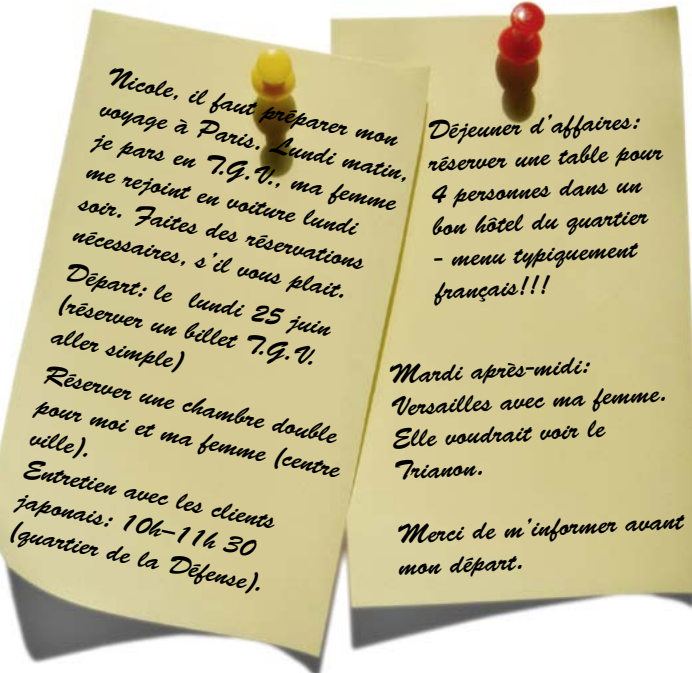 Nicole, il faut préparer mon
voyage à Paris. Lundi matin,
je pars en T.G.V., ma femme
me rejoint en voiture lundi
soir. Faites des réservations
nécessaires, s'il vous plait.
Départ: le lundi 25 juin
(réserver un billet T.G.V.
aller simple)
Réserver une chambre double
pour moi et ma femme (centre
ville).
Entretien avec les clients
japonais: 10h–11h 30
(quartier de la Défense).
Déjeuner d'affaires:
réserver une table pour
4 personnes dans un
bon hôtel du quartier
- menu typiquement
français!!!
Mardi après-midi:
Versailles avec ma femme.
Elle voudrait voir le
Trianon.
Merci de m'informer avant
mon départ.